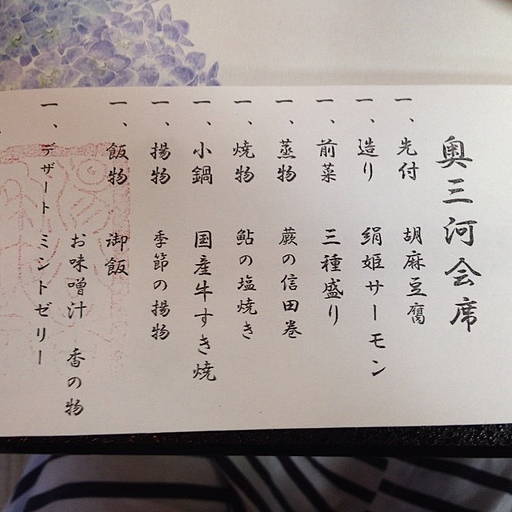 奥三河会席
一、先付 胡麻豆腐
一、造り 絹姫サーモン
一、前菜 三種盛り
一、蒸物 蕨の信田巻
一、焼物 鮎の塩焼き
一、小鍋 国産牛すき焼
一、揚物 季節の揚物
一、飯物 御飯
お味噌汁 香の物
一、デザート ミントゼリー